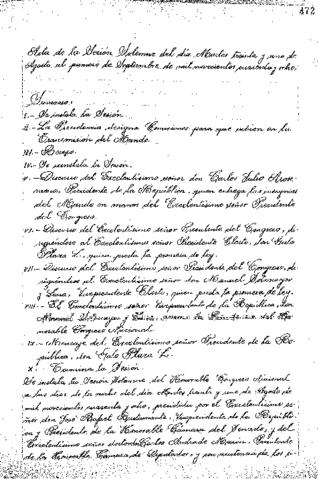 472
Acta de la Sesión Solemne del día Martes treinta y uno de
Agosto al primero de Septiembre de mil novecientos cuarenta y ocho.
Sumario:
I.- Se instala la Sesión
II.- La Presidencia designa Comisiones para que in la
Transmisión del Mando.
III.- Receso.
IV.- Se reinstala la Sesión.
V.- Discurso del Excelentísimo señor don Carlos Julio Arose-
mena, Presidente de la República, quien entrega las insignias
del Mando en manos del Excelentísimo señor Presidente
del Congreso.
VI.- Discurso del Excelentísimo señor Presidente del Congreso, di-
rigiéndose al Excelentísimo señor Presidente Electo, don Galo
Plaza L., quien presta la promesa de ley.
VII.- Discurso del Excelentísimo señor Presidente del Congreso, di-
rigiéndose al Excelentísimo señor don Manuel Sotomayor
y Luna, Vicepresidente Electo, quien presta la promesa de ley.
VIII.- El Excelentísimo señor Vicepresidente de la República, don
Manuel Sotomayor y Luna, asume la del Ho-
norable Congreso Nacional.
IX.- Mensaje del Excelentísimo señor Presidente de la Re-
pública, don Galo Plaza L.
X.- Termina la Sesión
Se instala la Sesión Solemne del Honorable Congreso Nacional
a las diez de la noche del día Martes treinta y uno de Agosto de
mil novecientos cuarenta y ocho, presidida por el Excelentísimo se-
ñor don José Rafael Bustamante, Vicepresidente de la Repúbli-
ca y Presidente de la Honorable Cámara del Senado, y del
Excelentísimo señor doctor Carlos Andrade Marín, Presidente
de la Honorable Cámara de Diputados, y con asistencia de los si-